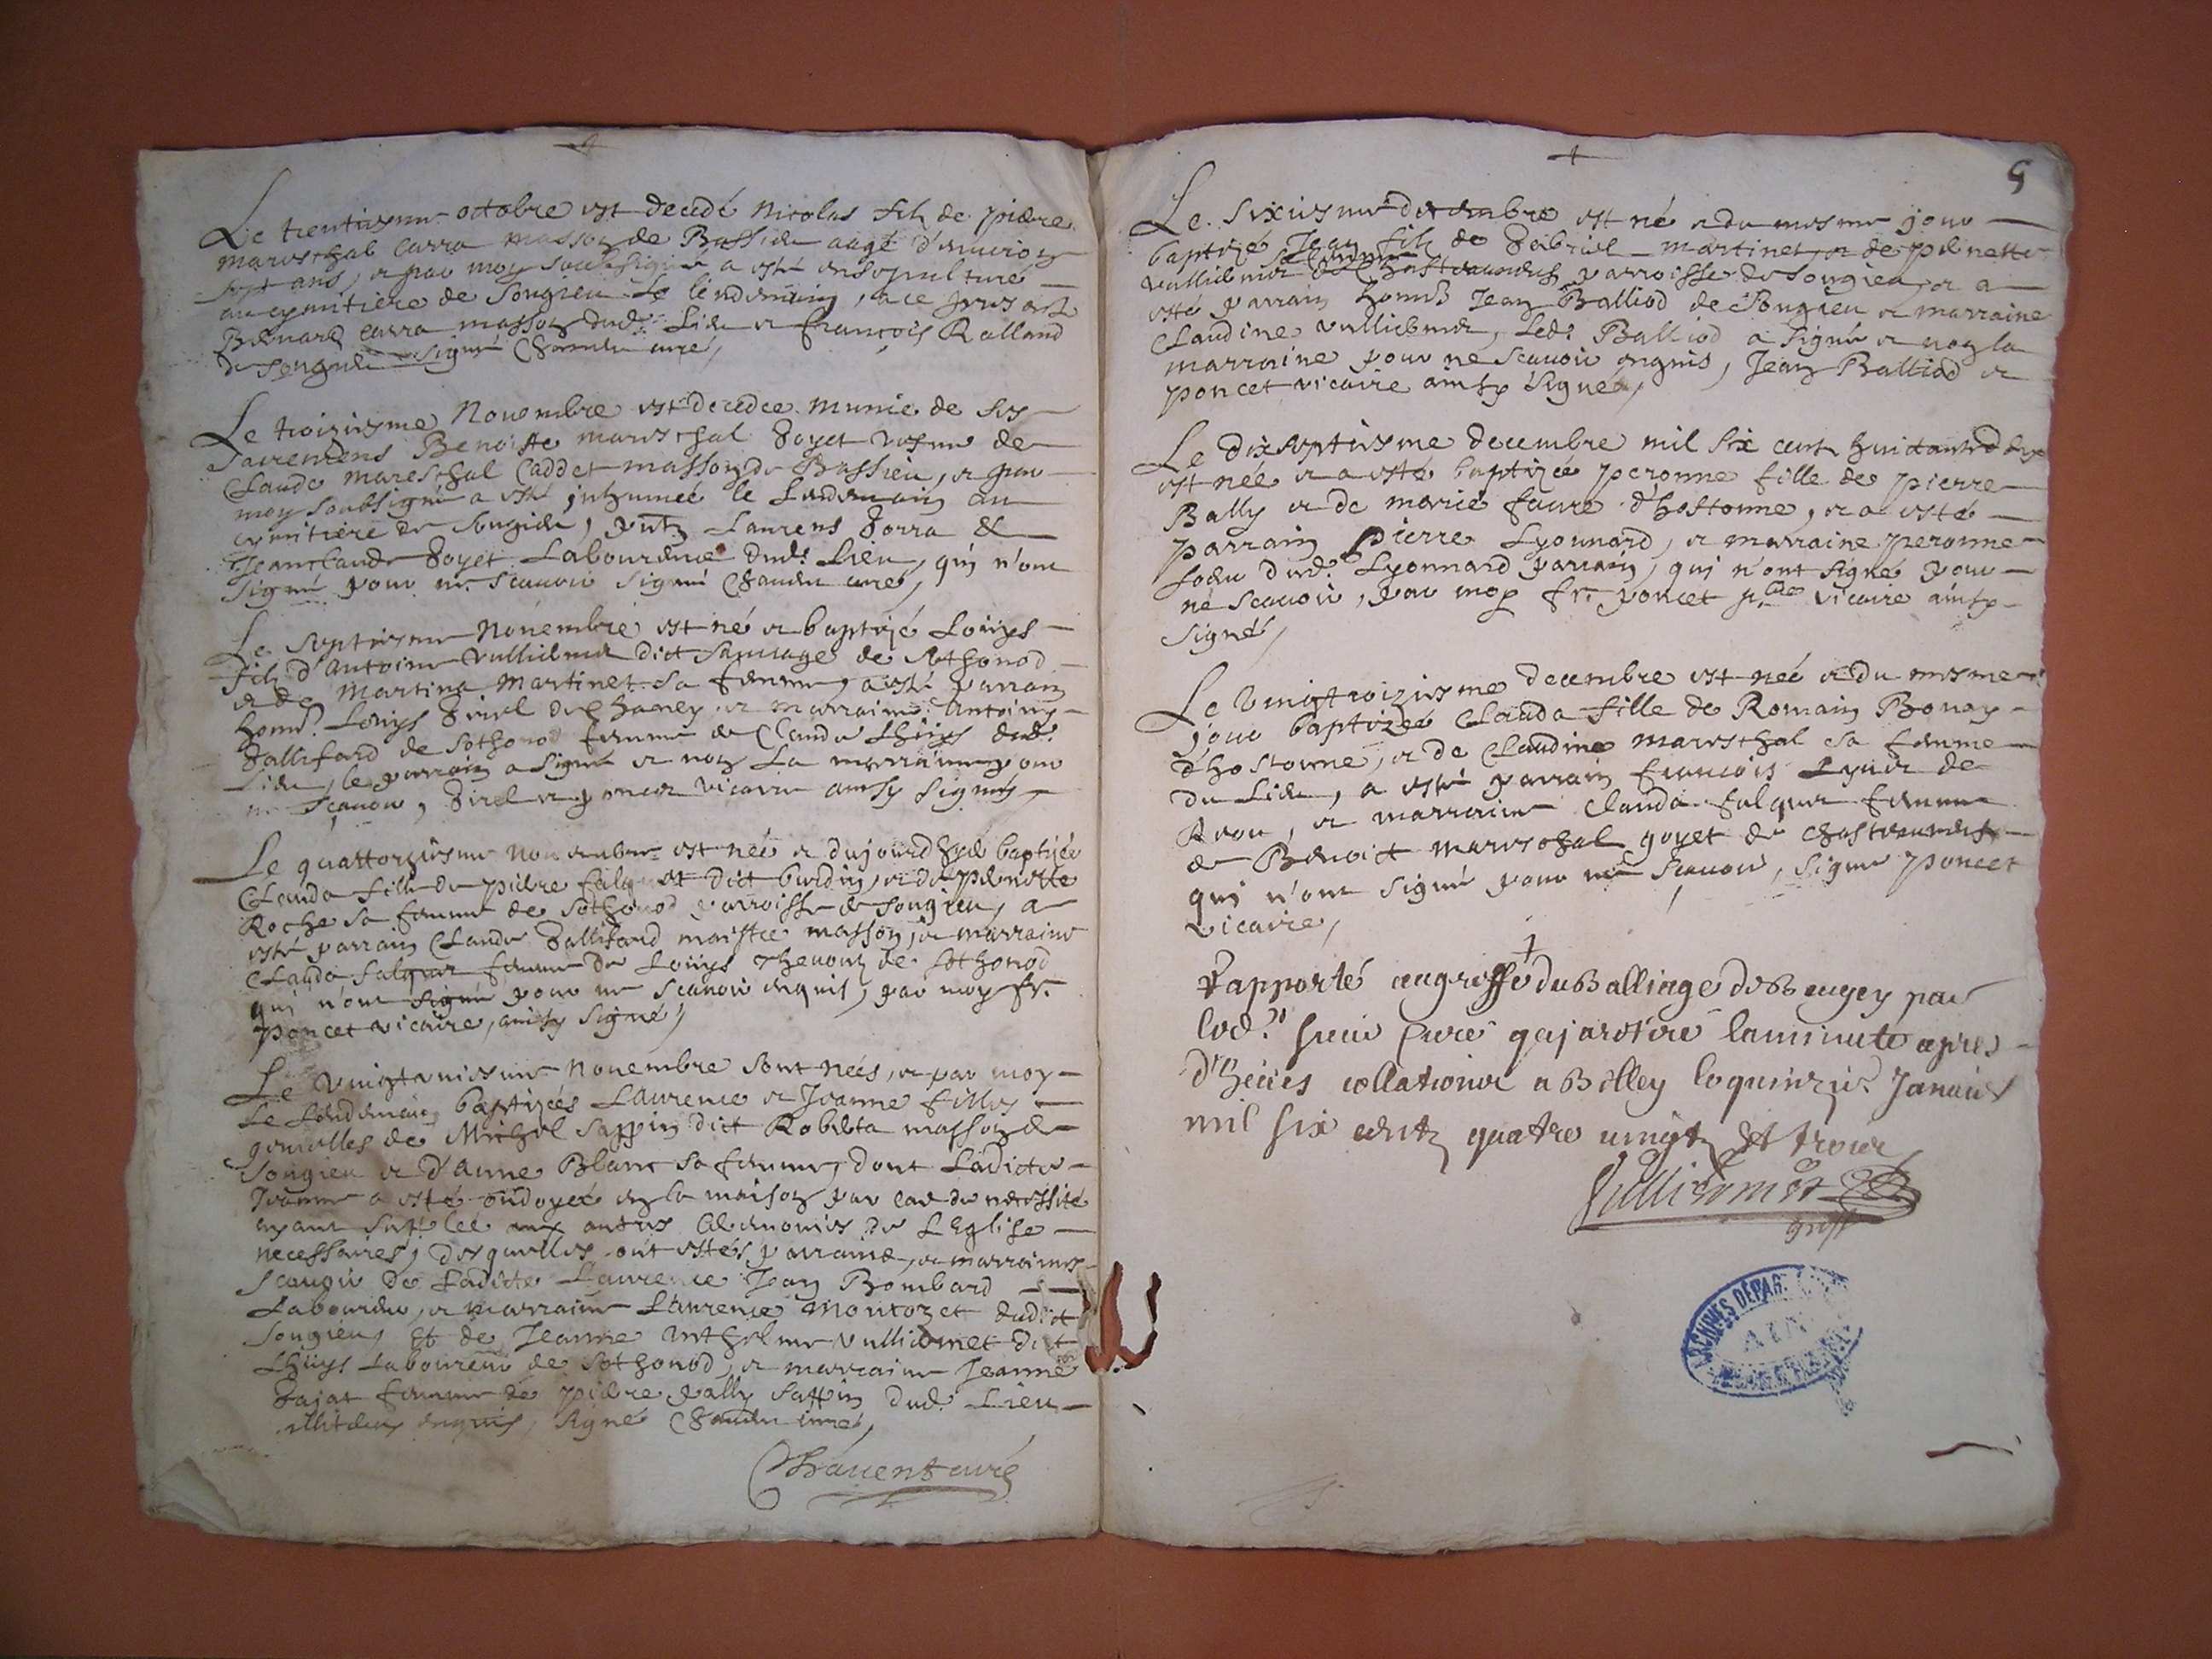 Le trentiesme octobre est decedé Nicolas filz de pierre
mareschal Carra masson de Bassieu aagé d'environ
sept ans, et par moy soubsigné a esté ensepulturé
au cymitiere de Songieu le lendemain, a ce present
Bernard Carra masson dud. Lieu et francois Ralland
de Songieu signé curé,
Le troisiesme Novembre est decedee munie de ses
Sacremens Benoitte mareschal Goyet vefve de
Claude mareschal Caddet masson de Bassieu, et par
moy soubsigné a esté inhumeé le Lendemain au
cymitiere de Songieu, pntz Laurens Gorra &
Jeanclaude Goyet Laboureurs dud. Lieu, qui n'ont
signé pour ne scavoir signé curé,
Le septiesme Novembre est né et baptizé Loüys
filz d'Antoine Vulliemet dict Sauvage de Sothonod
et de Martina Martinet sa femme, a esté parrain
honn. Loüys Girel de et marraine Antoina
Gallifard de Sothonod femme de Claude dud.
Lieu, le parrain a signé et non la marraine pour
ne scavoir, Girel et poncet vicaire ainsy signés,
Le quattorziesme Novembre est néé et dujourdhyer baptizéé
Clauda fille de pierre falquet dict burdin, et de pernette
Roche sa femme de Sothonod parroisse de Songieu, a
esté parrain Claude Gallifard maistre masson, et marraine
Clauda falquet femme de Loüys Thevont de Sothonod
qui n'ont signé pour ne scavoir enquis, par moy fr.
Poncet vicaire, ainsy signé,
Le Vingtuniesme Novembre sont nées, et par moy
Le Lendemain baptizées Laurence et Jeanne filles
gemelles de Michel Sappin dict Roberta masson de
Songieu et d'Anne Blanc sa femme, dont Ladicte
Jeanne a esté ondoyeé en la maison par cas de necessité
ayant suppleé aux autres Ceremonies de L'Eglise
necessaires, desquelles ont estés parrains, et marraines
Scavoir de Ladicte Laurence Jean Bombard
Laboureur, et marraine Laurence Montozet dudict
Songieu, Et de Jeanne Anthelme Vulliemet dict
Laboureur de Sothonod, et marraine Jeanne
Gajat femme de pierre pally Sappin dud. Lieu
illiterés enquis, signé curé,
5
Le Sixiesme decembre est né et du mesme jour
baptizé Jean filz de Gabriel martinet, et de pernette
Vulliemet sa femme de parroisse de Songieu, et a
esté parrain honn. Jean Balliod de Songieu et marraine
Claudine Vulliemet, Led. Balliod a signé et non la
marraine pour ne scavoir enquis, Jean Balliod et
Poncet vicaire ainsy signés,
Le dixseptiesme decembre mil six cent huictante deux
est néé et a esté baptizeé peronne fille de pierre
Bally et de marie faure d'hostonne, et a esté
parrain pierre Lyonnard, et marraine peronne
soeur dud. Lyonnard parrain, qui n'ont signé pour
ne scavoir, par moy fr. poncet vicaire ainsy
signé,
Le Vingttroiziesme decembre est néé et du mesme
jour baptizeé Clauda fille de Romain Bonay
d'hostonne, et de Claudine mareschal sa femme
du Lieu, a esté parrain francois de
et marraine Clauda falquet femme
de Benoict mareschal goyet de
qui n'ont signé pour ne scavoir, signé Poncet
vicaire,
Rapporté au greffe du Balliage de Beugey par
led. sieur Curé qui a retiré la minute apres
d'heües collationné a Belley le quinzie. Janvier
mil six centz quatre vingtz et trois
Vulliermet
greff
ARCHIVES DÉPAG.
AIN